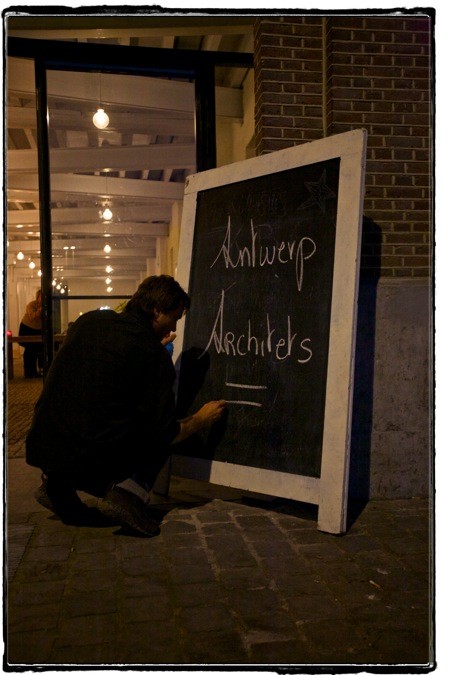 Antwerp
Architets